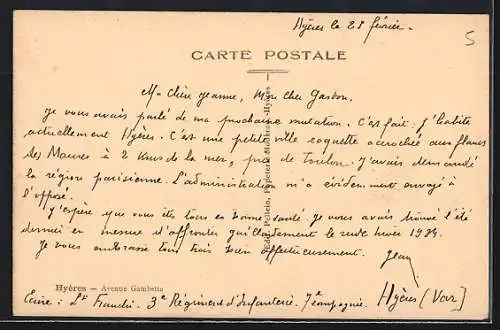 Hyères le 25 février.
5
CARTE POSTALE
Ma chère Jeanne, Mon cher Gaston.
Je vous avais parlé de ma prochaine mutation. C'est fait: J'habite
actuellement Hyères. C'est une petite ville coquette accrochée aux flancs
des Maures à 2 kms de la mer, près de Toulon. J'avais demandé
la région parisienne. L'administration m'a évidemment envoyé à
l'opposé.
J'espère que vous êtes tous en bonne santé. Je vous avais trouvé l'été
dernier en mesure d'affronter gaillardement le rude hiver 1934.
Je vous embrasse tous trois bien affectueusement.
Jean
Hyères — Avenue Gambetta
Hyères (Var)
Ecrire: Lt 3e Régiment d'Infanterie. 7e Compagnie.
Edit. Papeterie Hyères